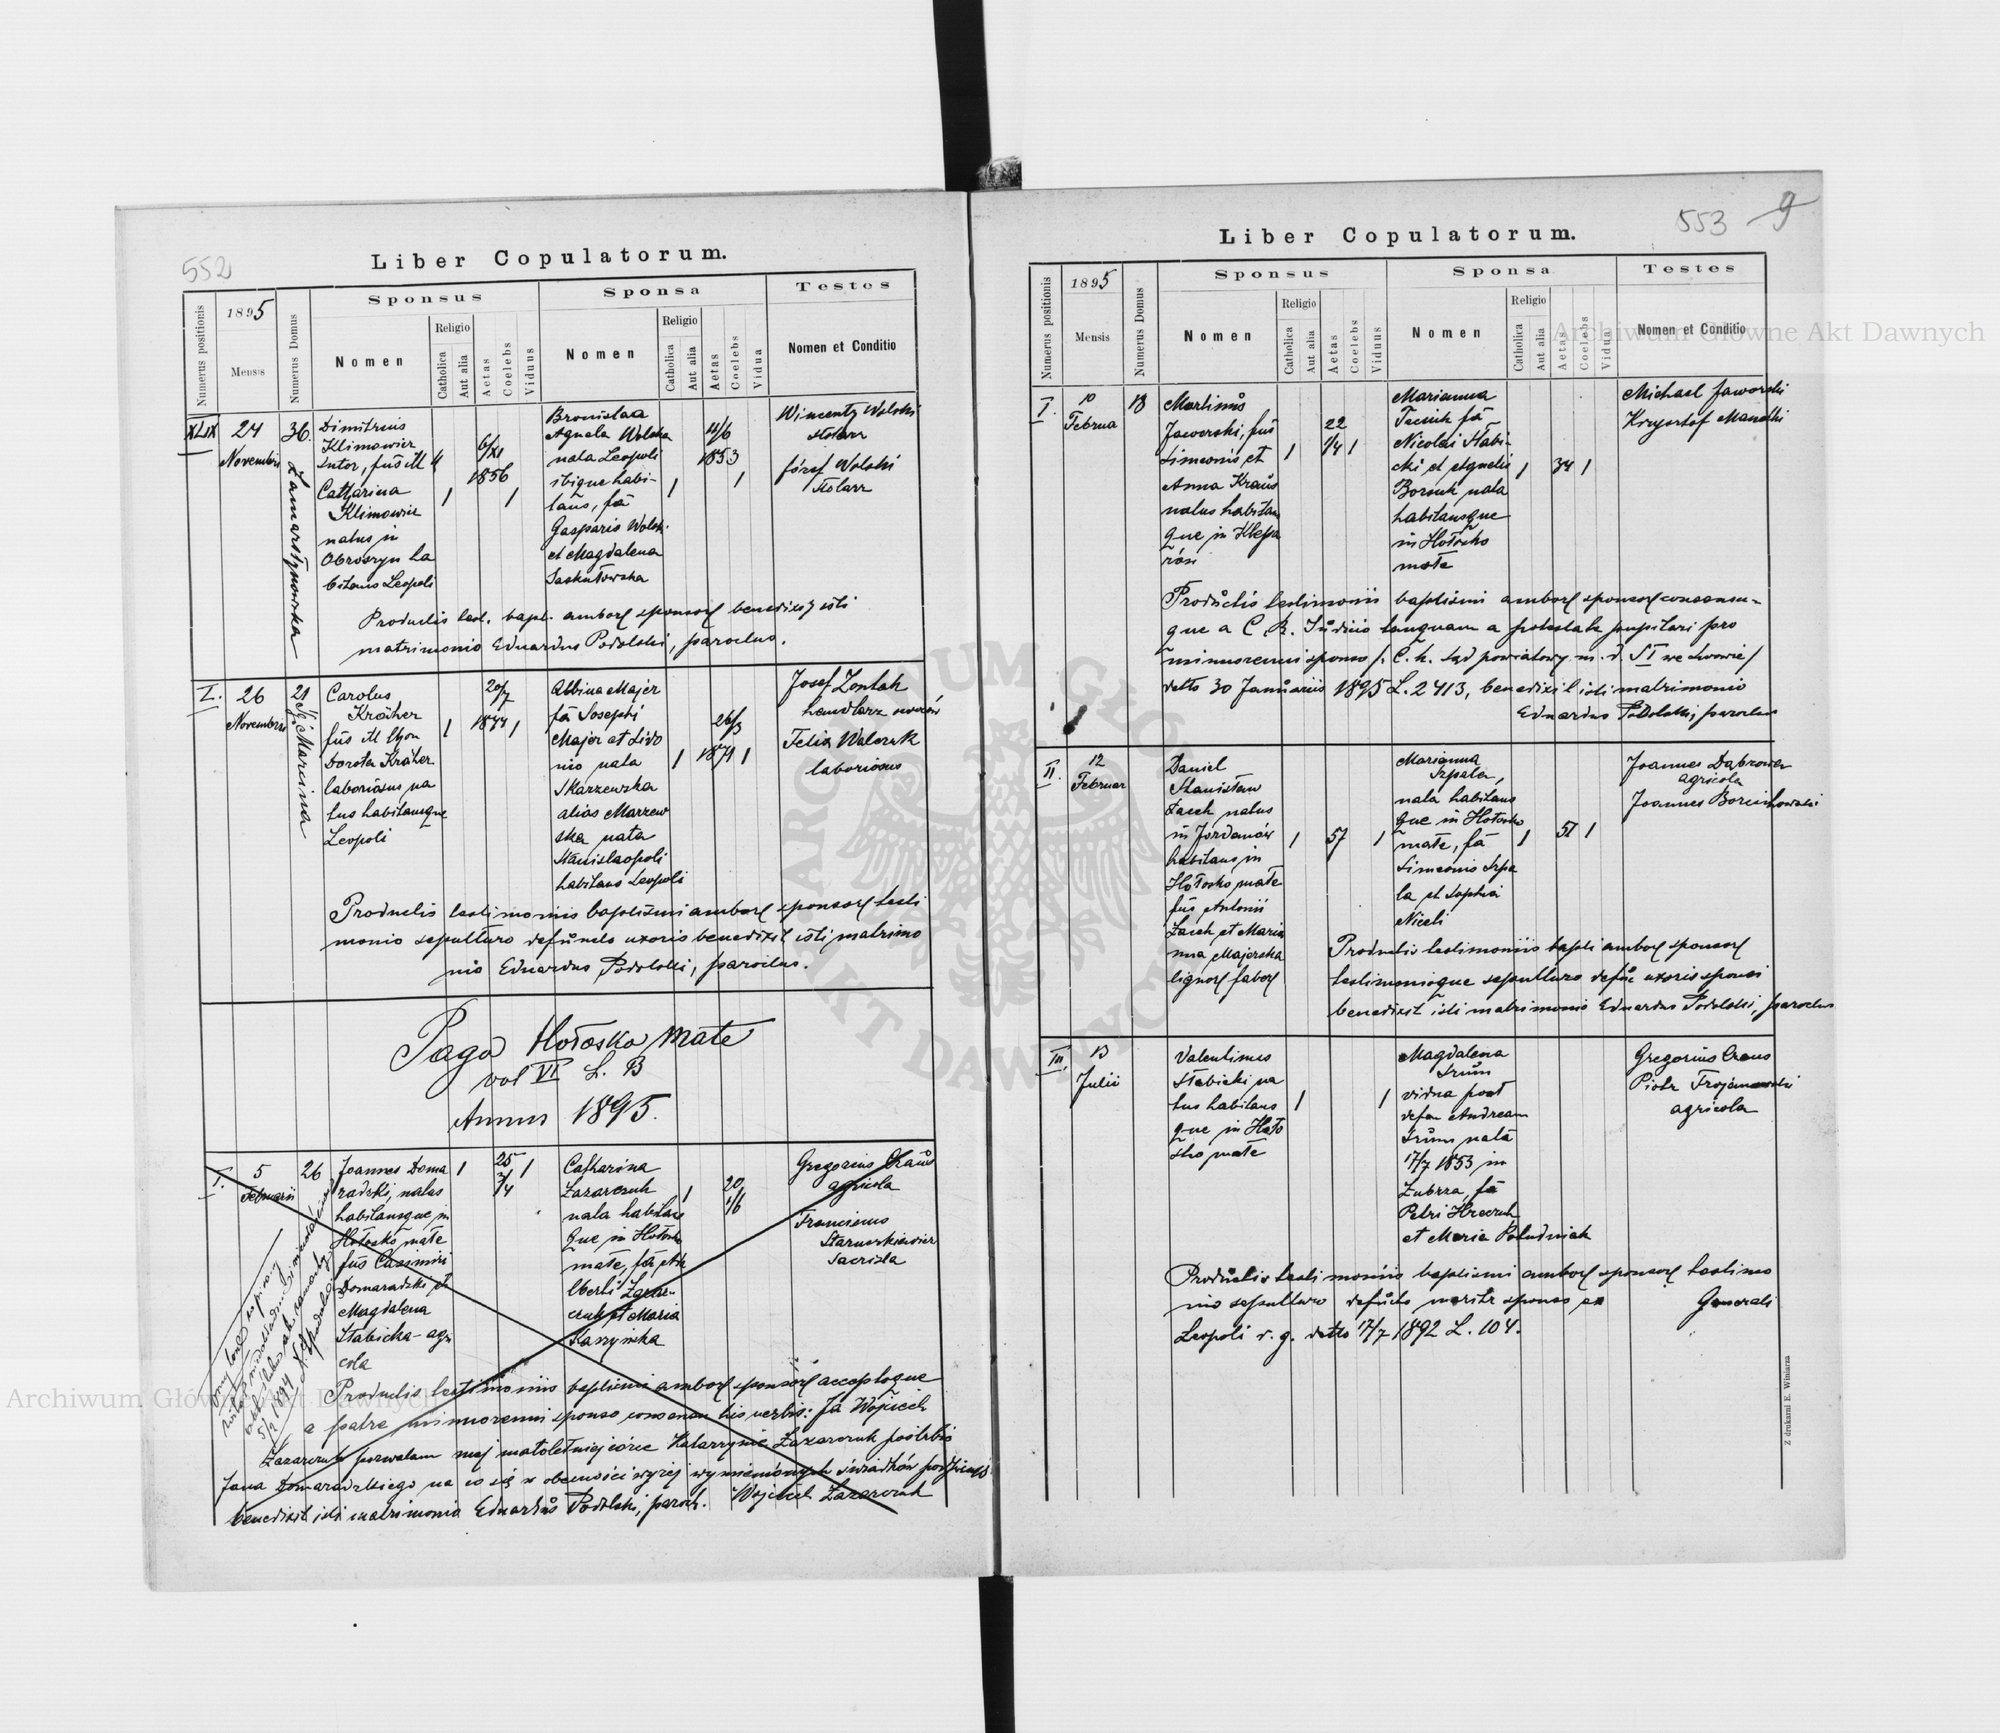 552
Liber Copulatorum.
Numerus positionis
1895
Mensis
Numerus Domus
Sponsus
Nomen
Religio
Catholica
Aut alia
Aetas
Coelebs
Viduus
Sponsa
Nomen
Religio
Catholica
Aut alia
Aetas
Coelebs
Vidua
Testes
Nomen et Conditio
XLIX
24
Novembris
36.
Zamarstynowska
Dimitrius
Klimowicz
sutor, fus ill
Catharina
Klimowicz
natus in
Obroszyn ha
bitans Leopoli
1
6/XI
1856
1
Bronislaa
Agnela Wolska
nata Leopoli
ibique habi-
tans, fa
Gasparis Wolski
et Magdalena
1
11/6
1853
1
Wincenty Wolski
stolarz
Józef Wolski
stolarz
Productis test. bapt. ambor sponsor benedixit isti
matrimonio Eduardus Podolski, parochus.
L.
26
Novembris
21
Sgo Marcina
Carolus
Kräher
Dorota Kräher
laboriosus na
tus habitansque
Leopoli
1
20/7
1874
1
Albina Majer
fa Josephi
Majer et Lido
nio nata
Skarzewska
alias Marzew
ska nata
Stanislaopoli
habitans Leopoli
1
26/3
1871
1
Josef Zontak
handlarz
Felix Walczak
laboriosus
Productis testimoniis baptismi ambor sponsor testi
monio sepulturo defuncto uxoris benedixit isti matrimo
nio Eduardus Podolski, parochus.
Pago Hołosko małe
vol VI L. B
Annus 1895.
I.
5
Februarii
26
Joannes Doma
radzki, natus
habitansque in
Hołosko małe
fus Casimiri
Domaradzki et
Magdalena
Słabicka agri
cola
1
25
3/4
1
Catharina
Łazarczuk
nata habitans
que in Hołosko
małe, fa Ada
lberti Łazar-
czuk et Maria
Kaszyńska
1
20
1/6
Gregorius Kraus
agricola
Franciscus
Staruszkiewicz
Sacrista
5/2 1894
Productis testimoniis baptismi ambor sponsor acceptoque
a patre minorenni sponso consensu his verbis: Ja Wojciech
Łazarczuk pozwalam mej małoletniej córce Katarzynie Łazarczuk poślubić
Jana Domaradzkiego na co się w obecności wyżej wymienionych świadków podpisuję
benedixit isti matrimonio Eduardus Podolski, paroch. Wojciech Łazarczuk
553
9
Liber Copulatorum.
Numerus positionis
1895
Mensis
Numerus Domus
Sponsus
Nomen
Religio
Catholica
Aut alia
Aetas
Coelebs
Viduus
Sponsa
Nomen
Religio
Catholica
Aut alia
Aetas
Coelebs
Vidua
Testes
Nomen et Conditio
I.
10
Februa
18
Martinus
Jaworski, fus
Simeonis et
Anna Kraus
natus habitans
que in Klepa
rów
1
22
1/4
1
Marianna
fa
Nicolai Słabi-
cki et Agnetis
Borsuk nata
habitansque
in Hołosko
małe
1
34
1
Michael Jaworski
Krzysztof
Productis testimonii baptismi ambor sponsor consensu-
que a C. K. Judicio tanquam a potestate pupilari pro
minorenni sponso /: C. k. Sąd powiatowy m. d. S I we Lwowie/
detto 30 Januarii 1895 L. 2413, benedixit isti matrimonio
Eduardus Podolski, parochus
II.
12
Februar
Daniel
Stanisław
Zacek natus
in Jordanów
habitans in
Hołosko małe
fus Antonii
Zacek et Maria
nna Majerska
lignor fabor
1
57
1
Marianna
Szpala,
nata habitans
que in Hołosko
małe, fa
Simeonis Szpa
la et Sophia
Niceli
1
51
1
Joannes Dąbrower
agricola
Joannes
Productis testimoniis bapti ambor sponsor
testimonioque sepulturo defun uxoris sponsi
benedixit isti matrimonio Eduardus Podolski, parochus
III.
13
Julii
Valentinus
Słabicki na
tus habitans
que in Hoło
sko małe
1
1
Magdalena
Srům
vidua post
defun Andream
Srům nata
17/7 1853 in
Zubrza, fa
Petri Hreczuk
et Maria Południak
Gregorius Craus
Piotr Trojanowski
agricola
Productis testimoniis baptismi ambor sponsor testimo
nio sepulturo defuncto maritr sponso ex Generali
Leopoli v. g. detto 17/7 1892 L. 104.
Z drukarni E. Winiarza
Archiwum Główne Akt Dawnych
Archiwum Główne Akt Dawnych
ARCHIWUM GŁÓWNE AKT DAWNYCH